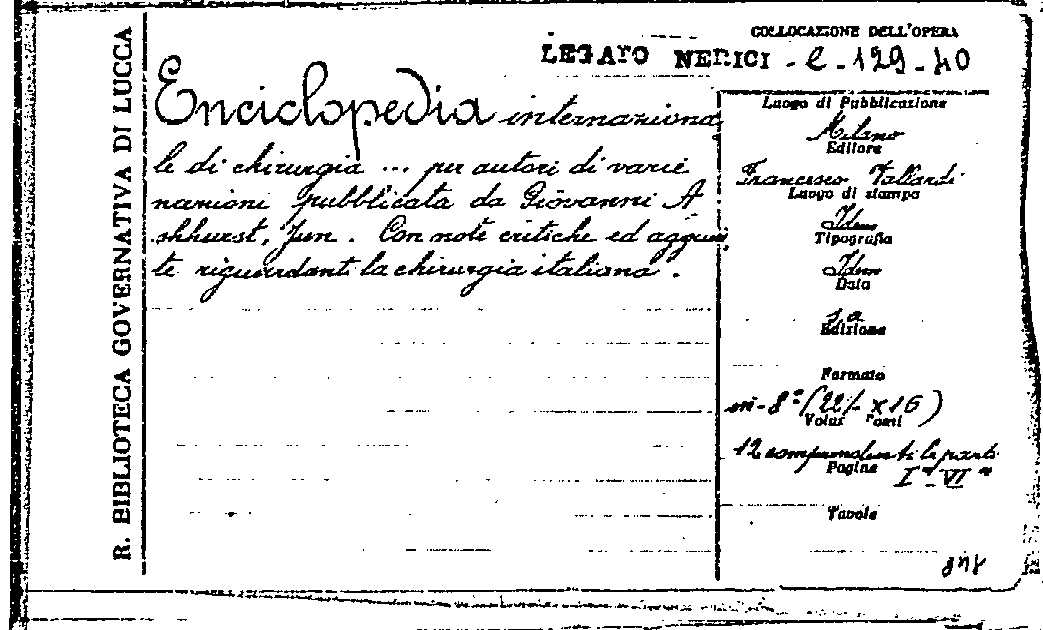 R. BIBLIOTECA GOVERNATIVA DI LUCCA
COLLOCAZIONE DELL'OPERA
LEGATO NERICI - e - 129 - 40
Enciclopedia internaziona
le di chirurgia ... per autori di varie
nazioni pubblicata da Giovanni A
shhurst, Jun. Con note critiche ed aggiun
te riguardanti la chirurgia italiana.
Luogo di Pubblicazione
Milano
Editore
Francesco Vallardi
Luogo di stampa
Idem
Tipografia
Idem
Data
s. a.
Edizione
Formato
in-8° (22 1/2 x 16)
Volumi Tomi
12 comprendenti le parti
Pagine
I - VI
Tavole